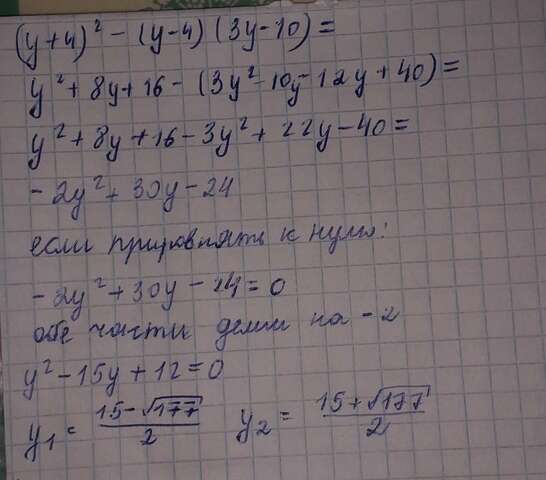 (y+4)² - (y-4)(3y-10)=
y² + 8y + 16 - (3y² - 10y - 12y + 40)=
y² + 8y + 16 - 3y² + 22y - 40=
- 2y² + 30y - 24
если приравнять к нулю:
- 2y² + 30y - 24 = 0
обе части делим на - 2
y² - 15y + 12 = 0
y₁ = (15-√177)/2 y₂ = (15+√177)/2